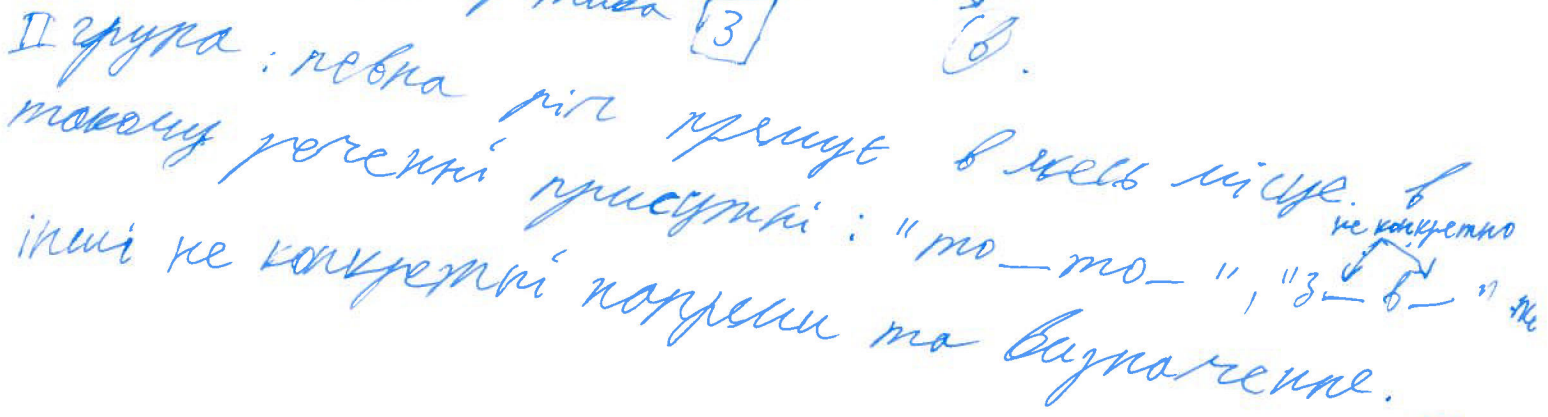 З в.
ІІ група : певна річ прямує в якесь місце. в
такому реченні присутні : "то_то_", "з_ в_"
не конкретно
інші не конкретні напрями та визначення.